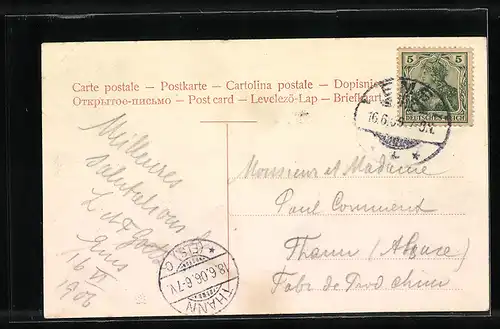 Carte postale – Postkarte – Cartolina postale – Dopisnice
Открытое-письмо – Post card – Levelező-Lap – Briefkaart
5 5
DEUTSCHES REICH
EMS
16.6.06
Meilleures
salutations
Ems
16 VI
1906
Monsieur et Madame
Paul Comment
Thann (Alsace)
Fabr de Prod chim
THANN
(ELS)
18.6.06.6-7V.